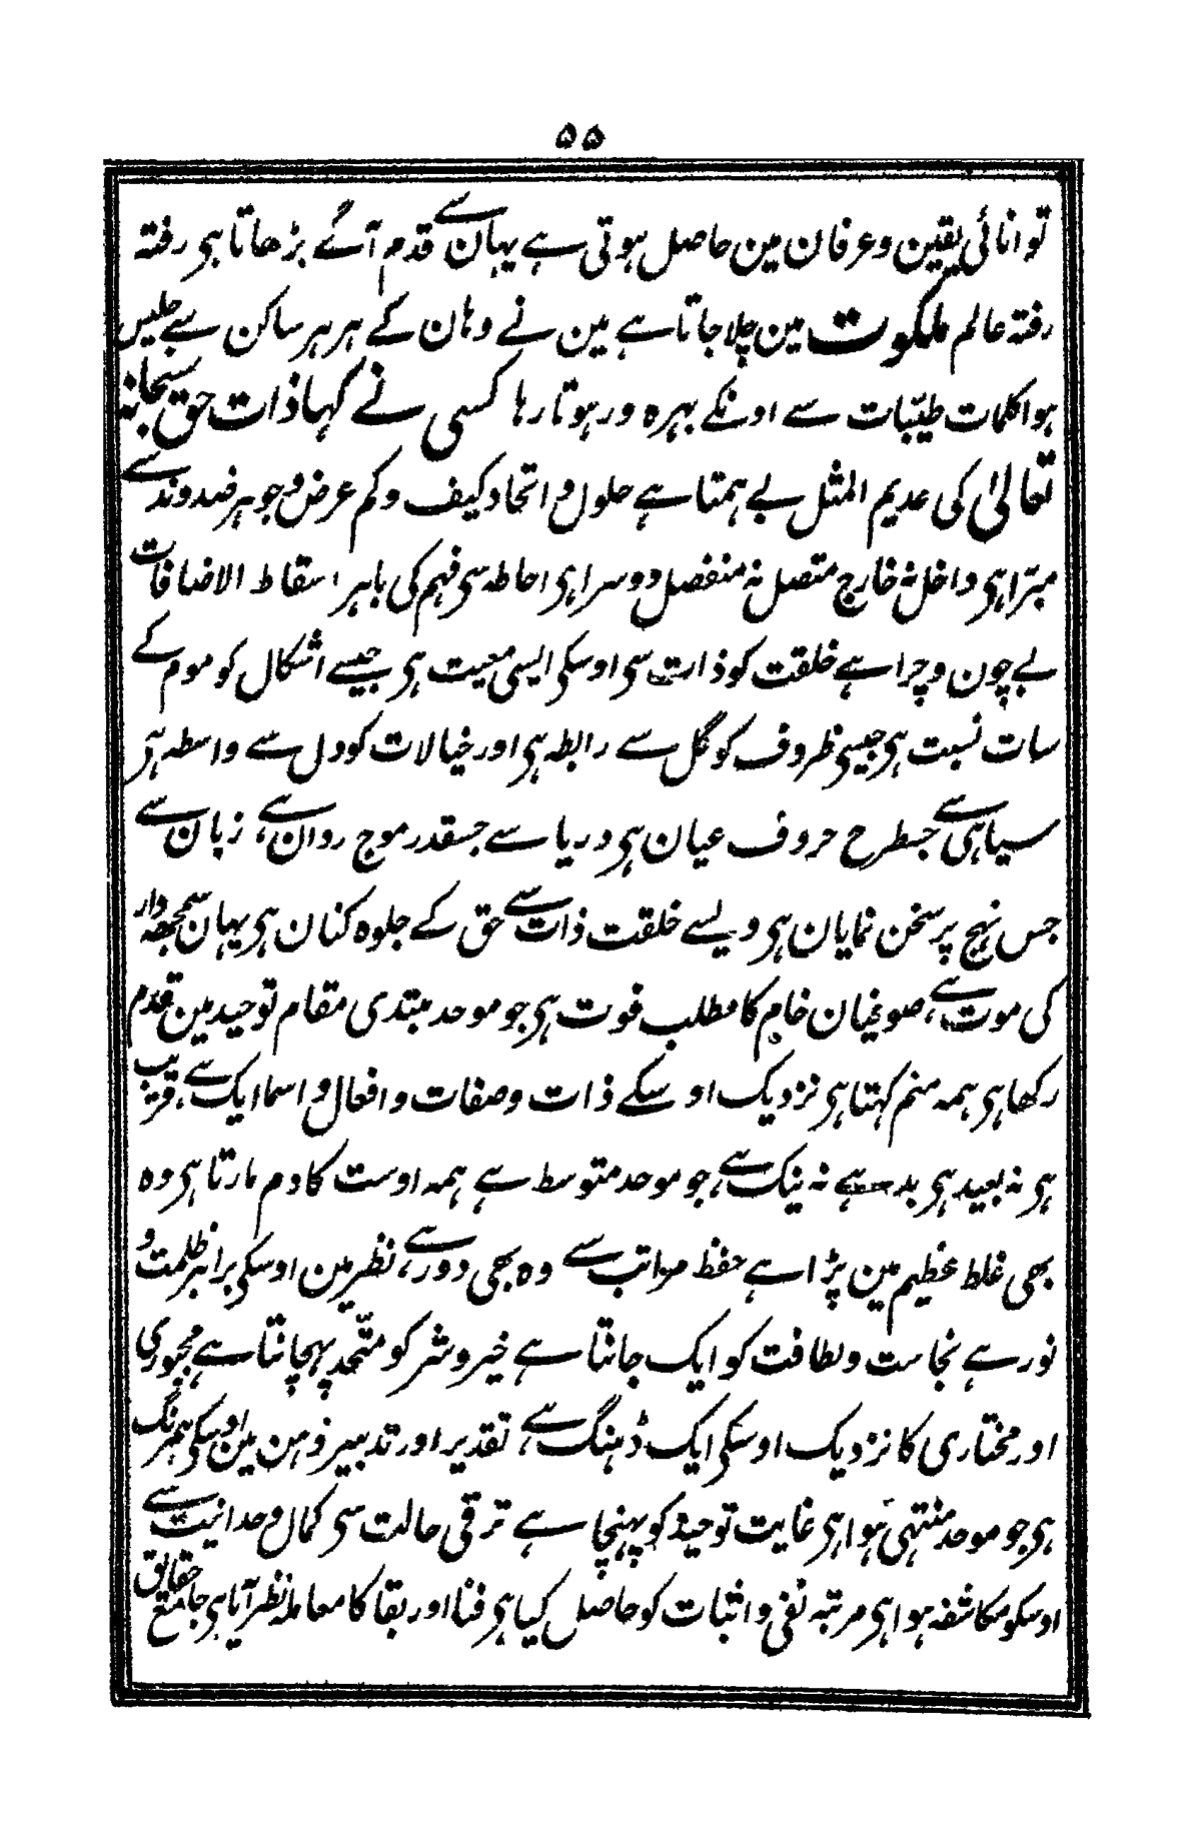 ۵۵
توانائی یقین و عرفان مین حاصل ہوتی ہے یہان سے قدم آگے بڑھاتا ہی رفتہ
رفتہ عالم ملکوت مین چلا جاتا ہے مین نے وہان کے ہر ہر ساکن سے جلیس
ہوا کلمات طیّبات سے اونکے بہرہ ور ہوتا رہا کسی نے کہا ذات حق سبحانہ
تعالیٰ کی عدیم المثل بے ہمتا ہے حلول و اتحاد کیف و کم عرض و جوہر ضد و ند سے
مبّرا ہی داخل نہ خارج متصل نہ منفصل دوسرا ہی احاطہ سی فہم کی باہر اسقاط الاضافات
بے چون و چرا ہے خلقت کو ذات سی اوسکی ایسی معیت ہی جیسے اشکال کو موم کے
سات نسبت ہی جیسی ظروف کو گل سے رابطہ ہی اور خیالات کو دل سے واسطہ ہی
سیاہی سے جسطرح حروف عیان ہی دریا سے جسقدر موج روان ہے، زبان سے
جس نہج پر سخن نمایان ہی ویسے خلقت ذات سے حق کے جلوہ کنان ہی یہان سمجھ دار
کی موت ہے، صوفیان خام کا مطلب فوت ہی جو موحد مبتدی مقام توحید مین قدم
رکھا ہی ہمہ منم کہتا ہی نزدیک اوسکے ذات و صفات و افعال و اسما ایک ہے، قریب
ہی نہ بعید ہی بد ہے نہ نیک ہے، جو موحد متوسط ہے ہمہ اوست کا دم مارتا ہی وہ
بھی غلط عظیم مین پڑا ہے حفظ مراتب سے وہ بھی دور ہے، نظر مین اوسکی برابر ظلمت و
نور ہے نجاست و لطافت کو ایک جانتا ہے خیر و شر کو متّحد پہچانتا ہے مجبوری
اور مختاری کا نزدیک اوسکی ایک ڈہنگ ہے، تقدیر اور تدبیر ذہن مین اوسکی ہمرنگ
ہی جو موحد منتہی ہوا ہی غایت توحید کو پہنچا ہے ترقی حالت سی کمال وحدانیت سے
اوسکو مکاشفہ ہوا ہی مرتبہ نفی و اثبات کو حاصل کیا ہی فنا اور بقا کا معاملہ نظر آیا ہی جامع حقایق